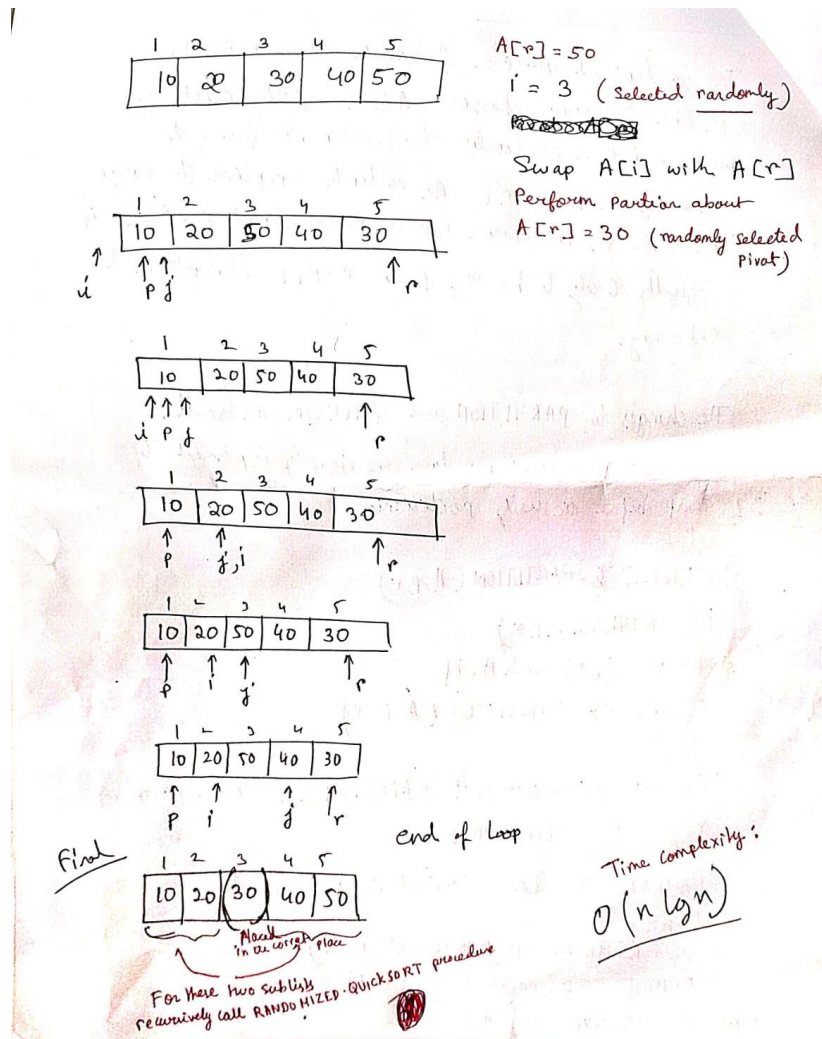 1 2 3 4 5
10 20 30 40 50
A[r] = 50
i = 3 (selected randomly)
Swap A[i] with A[r]
Perform partion about
A[r] = 30 (randomly selected
pivot)
1 2 3 4 5
10 20 50 40 30
i p j r
1 2 3 4 5
10 20 50 40 30
i p j r
1 2 3 4 5
10 20 50 40 30
p j,i r
1 2 3 4 5
10 20 50 40 30
p i j r
1 2 3 4 5
10 20 50 40 30
p i j r
end of loop
Final
1 2 3 4 5
10 20 (30) 40 50
Placed
in the correct place
For these two sublists
recursively call RANDOMIZED-QUICKSORT procedure
Time complexity:
O(n lg n)